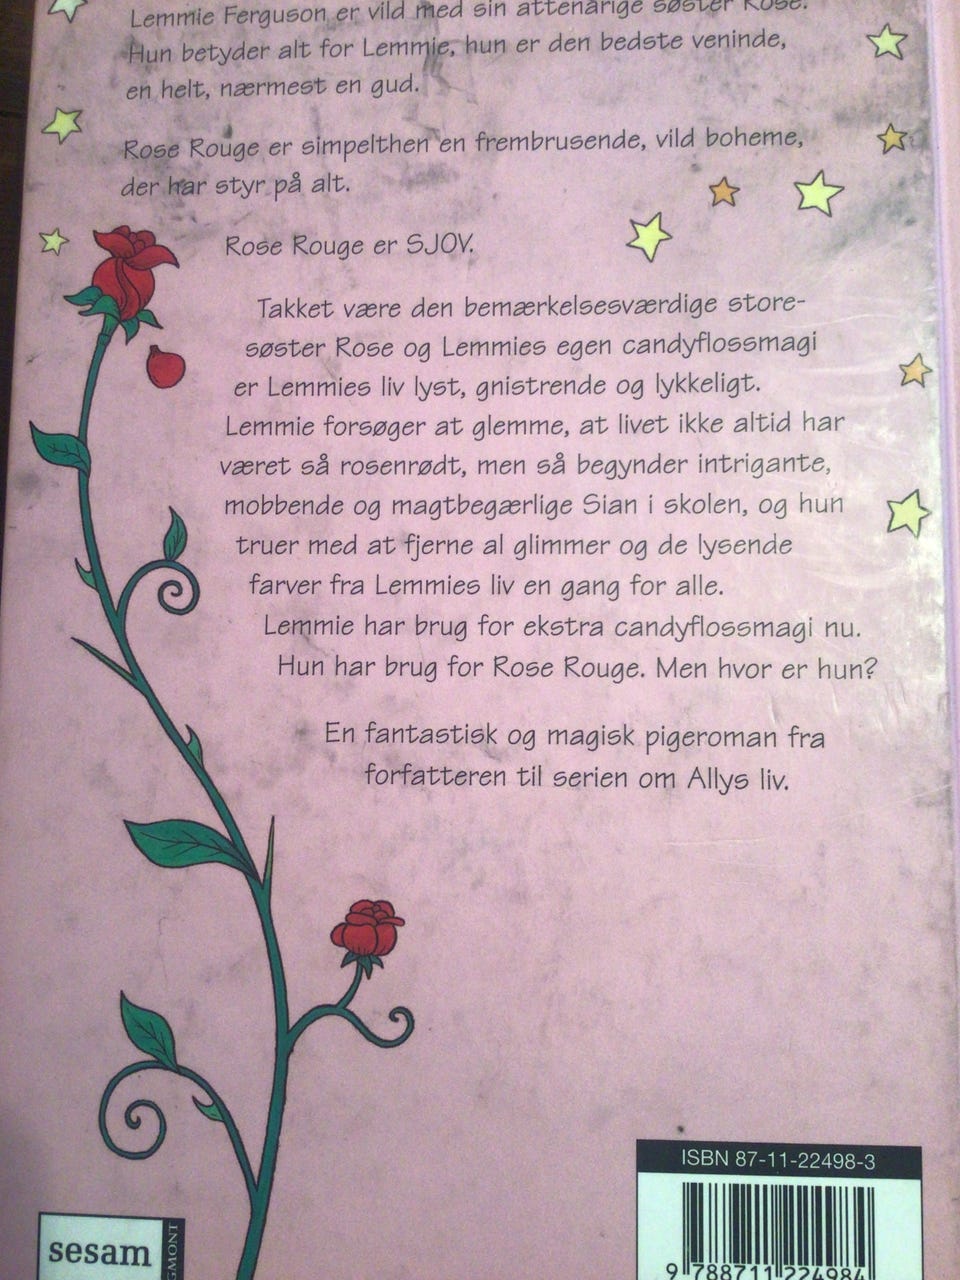 Lemmie Ferguson er vild med sin attenårige søster Rose.
Hun betyder alt for Lemmie, hun er den bedste veninde,
en helt, nærmest en gud.
Rose Rouge er simpelthen en frembrusende, vild boheme,
der har styr på alt.
Rose Rouge er SJOV.
Takket være den bemærkelsesværdige store-
søster Rose og Lemmies egen candyflossmagi
er Lemmies liv lyst, gnistrende og lykkeligt.
Lemmie forsøger at glemme, at livet ikke altid har
været så rosenrødt, men så begynder intrigante,
mobbende og magtbegærlige Sian i skolen, og hun
truer med at fjerne al glimmer og de lysende
farver fra Lemmies liv en gang for alle.
Lemmie har brug for ekstra candyflossmagi nu.
Hun har brug for Rose Rouge. Men hvor er hun?
En fantastisk og magisk pigeroman fra
forfatteren til serien om Allys liv.
ISBN 87-11-22498-3
9 788711 224984
sesam
GMONT